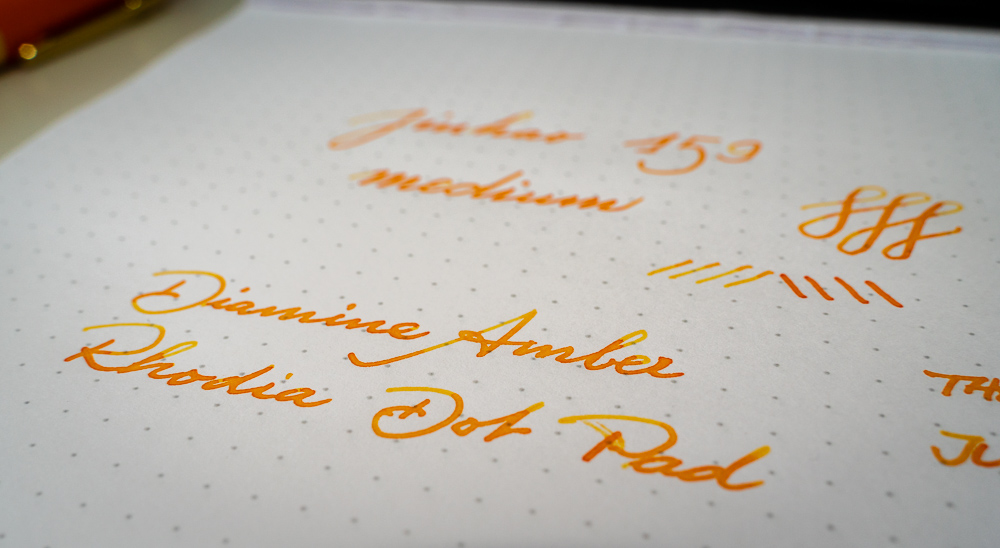 Jinhao 159
medium
Diamine Amber
Rhodia Dot Pad
TH
JU